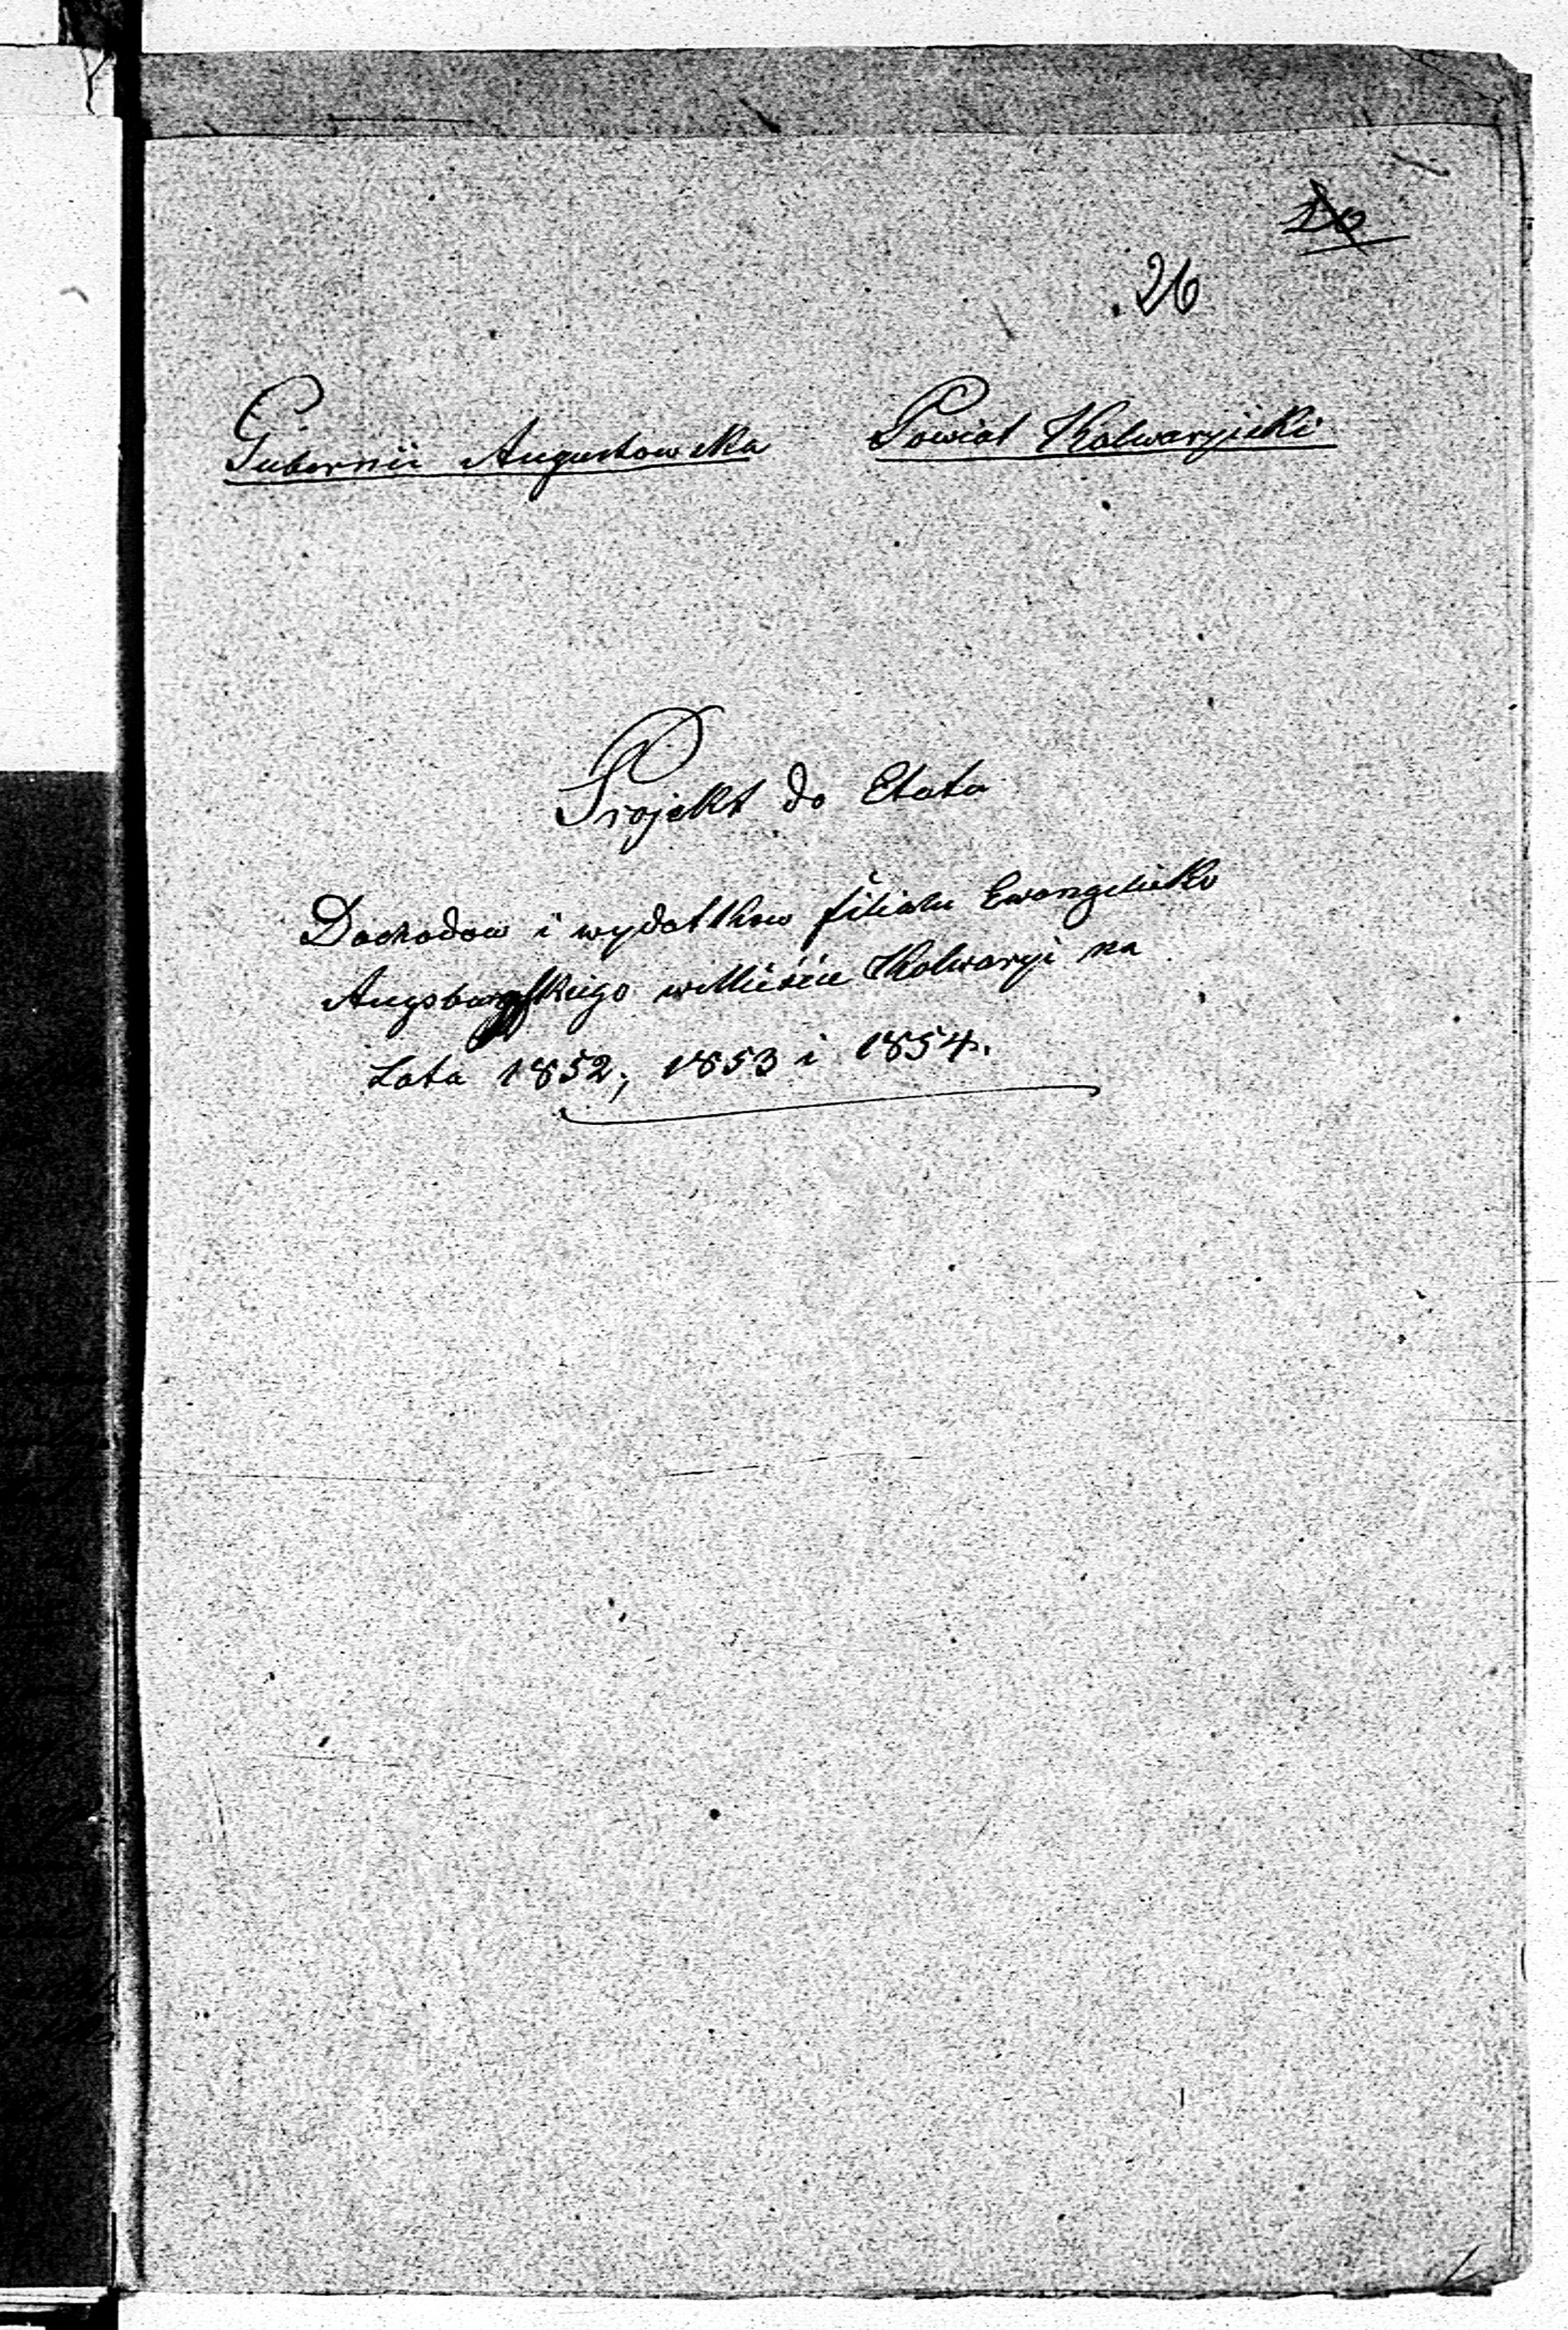 26
Gubernii Augustowska Powiat Kalwaryiski
Projekt do Etatu
Dochodow i wydatkow filialu Ewangelicko
Augsburgskiego w Mieście Kalwaryi na
Lata 1852, 1853 i 1854.